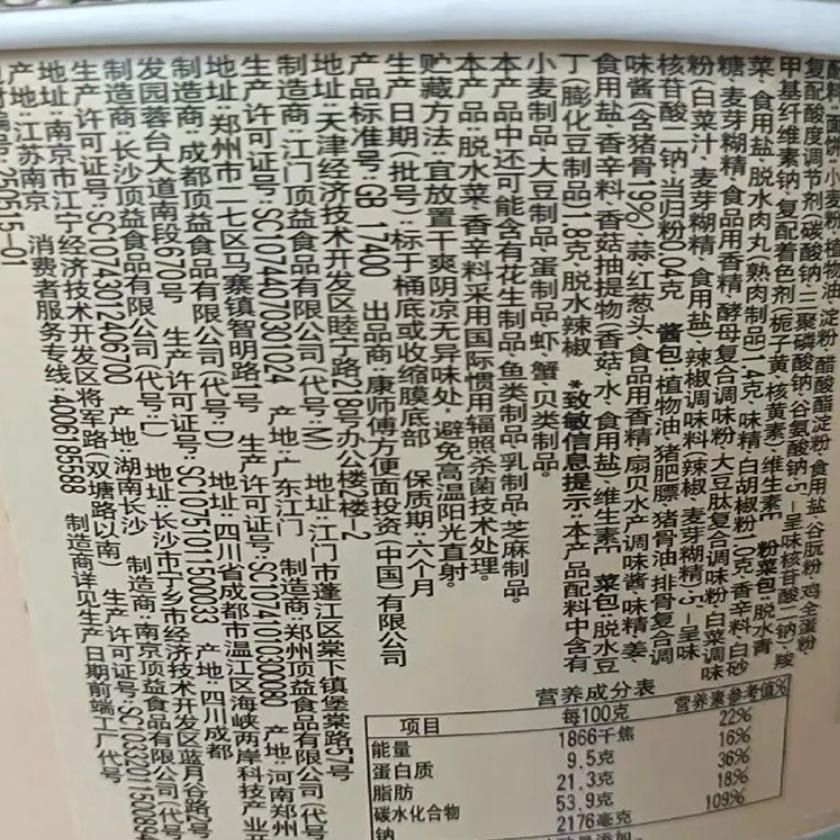 复配酸度调节剂(碳酸钠、三聚磷酸钠、谷氨酸钠、5'-呈味核苷酸二钠)、羧
甲基纤维素钠、复配着色剂(栀子黄、核黄素)、维生素E 粉菜包:脱水青
菜、食用盐、脱水肉丸(熟肉制品)1.4克、味精、白胡椒粉1.0克、香辛料、白砂
糖、麦芽糊精、食品用香精、酵母复合调味粉、大豆肽复合调味粉、白菜调味
粉(白菜汁、麦芽糊精、食用盐)、辣椒调味料(辣椒、麦芽糊精)、5'-呈味
核苷酸二钠、当归粉0.04克 酱包:植物油、猪肥膘、猪骨油、排骨复合调
味酱(含猪骨19%)、蒜、红葱头、食品用香精、扇贝水产调味酱、味精、姜、
食用盐、香辛料、香菇抽提物(香菇、水、食用盐)、维生素E 菜包:脱水豆
丁(膨化豆制品)1.8克、脱水辣椒 *致敏信息提示:本产品配料中含有
小麦制品、大豆制品、蛋制品、虾、蟹、贝类制品。
本产品中还可能含有花生制品、鱼类制品、乳制品、芝麻制品。
本产品:脱水菜、香辛料采用国际惯用辐照杀菌技术处理。
贮藏方法:宜放置干爽阴凉无异味处,避免高温阳光直射。
生产日期(批号):标于桶底或收缩膜底部 保质期:六个月
产品标准号:GB 17400 出品商:康师傅方便面投资(中国)有限公司
地址:天津经济技术开发区睦宁路218号办公楼2楼-2
制造商:江门顶益食品有限公司(代号:M) 地址:江门市蓬江区棠下镇堡棠路57号
生产许可证号:SC10744070301024 产地:广东江门 制造商:郑州顶益食品有限公司(代号
地址:郑州市二七区马寨镇智明路1号 生产许可证号:SC10741010300080 产地:河南郑州
制造商:成都顶益食品有限公司(代号:D) 地址:四川省成都市温江区海峡两岸科技产业开
发园蓉台大道南段670号 生产许可证号:SC10751011500033 产地:四川成都
制造商:长沙顶益食品有限公司(代号:L) 地址:长沙市宁乡市经济技术开发区蓝月谷路号
生产许可证号:SC10743012406700 产地:湖南长沙 制造商:南京顶益食品有限公司(代号
地址:南京市江宁经济技术开发区将军路(双塘路以南) 生产许可证号:SC10332011500894
产地:江苏南京 消费者服务专线:4006185588 制造商详见生产日期前端工厂代号
250515-01
营养成分表
项目 每100克 营养素参考值%
能量 1866千焦 22%
蛋白质 9.5克 16%
脂肪 21.3克 36%
碳水化合物 53.9克 18%
钠 2176毫克 109%